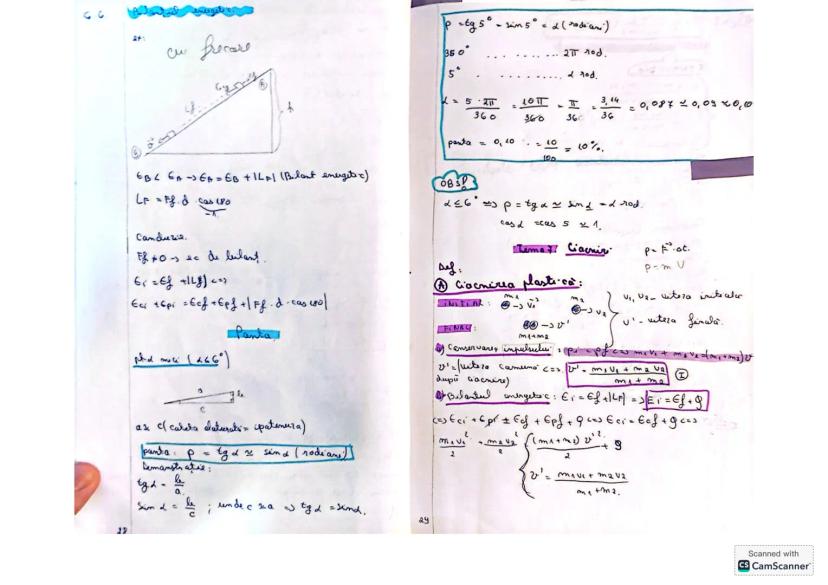 cu frecare
EB < EA → EA = EB + |LF| (Bilanț energetic)
LF = Ff · d · cos 180
-1
Concluzie.
Ff ≠ 0 → ec de bilanț.
Ei = Ef + |Lf| <=>
Eci + Epi = Ecf + Epf + |Ff · d · cos 180|
Panta
(α ≤ 6°)
a ≈ c (cateta alaturată = ipotenuza)
panta: p = tg α ≈ sin α (radiani)
Demonstrație:
tg α = h/a
sin α = h/c ; unde c ≈ a => tg α = sin α.
28
p = tg 5° = sin 5° = α (radiani)
360° .......... 2π rad.
5° .......... α rad.
α = 5 · 2π/360 = 10π/360 = π/36 = 3,14/36 = 0,087 ≈ 0,09 ≈ 0,10
panta = 0,10 = 10/100 = 10%.
OBS!
α ≤ 6° => p = tg α ≈ sin α = α rad.
cos α = cos 5 ≈ 1.
Tema 7 Ciocniri
p = F · Δt
p = m V
Def:
A Ciocnirea plastică:
INIȚIAL: m1 → v1 m2 → v2
v1, v2 - viteza inițială
FINAL: → v'
m1+m2
v' - viteza finală.
a) Conservarea impulsului: pi = pf <=> m1v1 + m2v2 = (m1+m2)v'
v' = (viteza comună <=> v' = m1v1 + m2v2/m1 + m2 I
după ciocnire)
b) Bilanțul energetic: Ei = Ef + |LF| => Ei = Ef + Q
<=> Eci + Epi = Ecf + Epf + Q <=> Eci = Ecf + Q <=>
m1v1²/2 + m2v2²/2 = (m1+m2) v'²/2 + Q
v' = m1v1 + m2v2/m1 + m2.
29
Scanned with
CS CamScanner